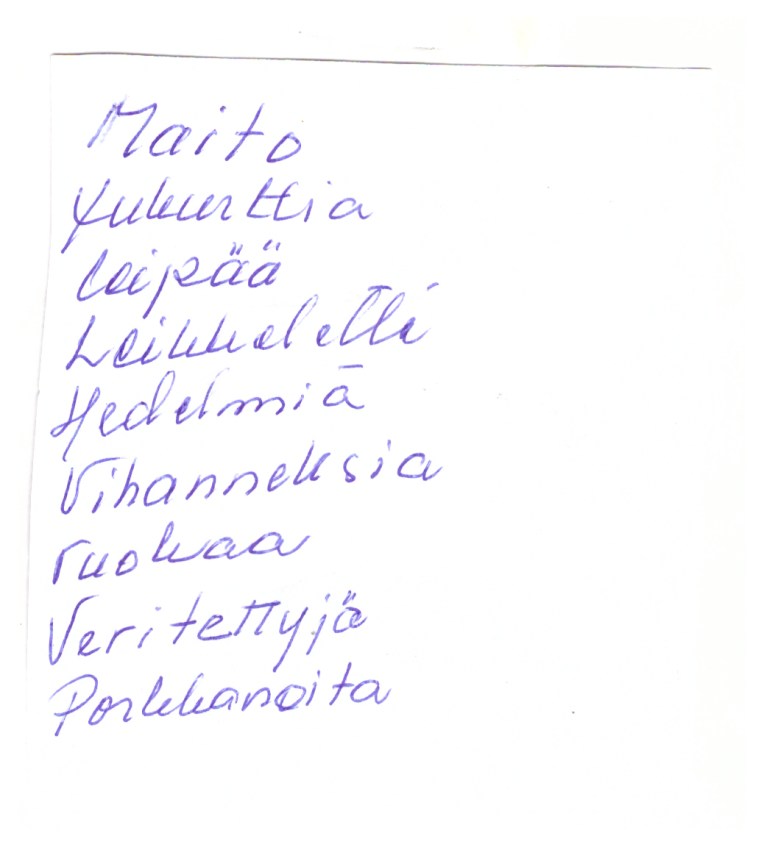 Maito
Yukurttia
Leipää
Leikkelettä
Hedelmiä
Vihanneksia
ruokaa
Veritettyjä
Porkkanoita